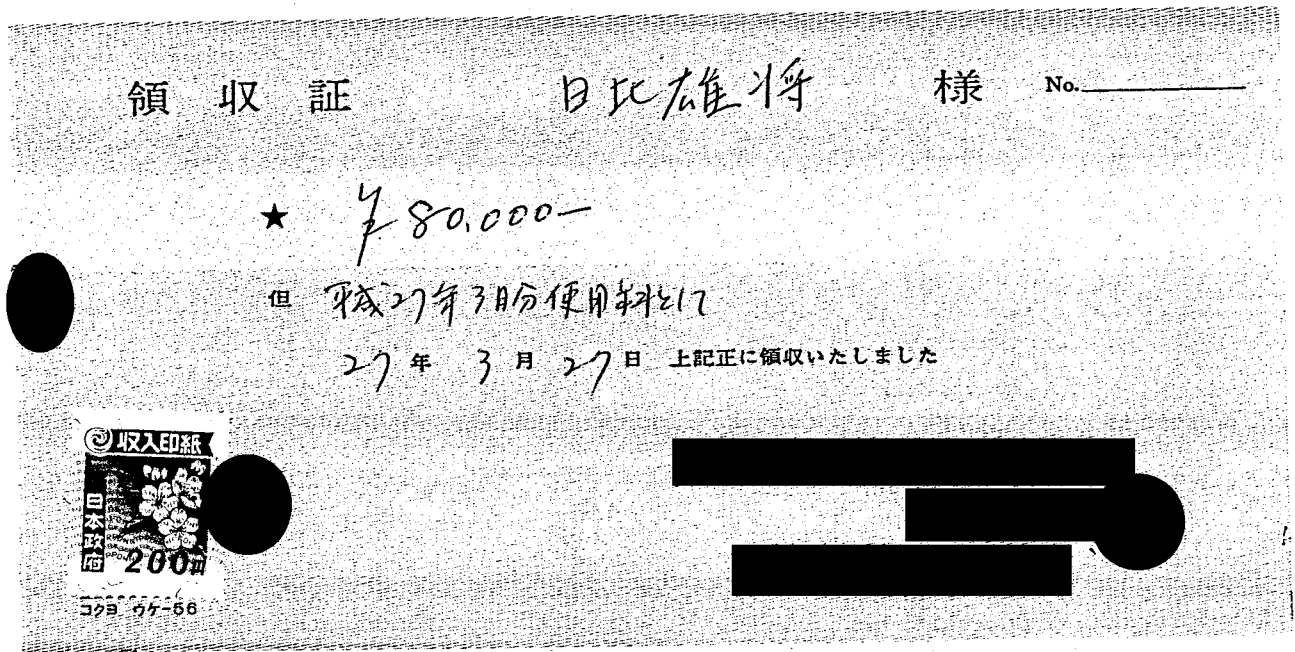 領収証 日比雄将 様 No.
★ ¥80,000-
但 平成27年3月分使用料として
27年 3月 27日 上記正に領収いたしました
収入印紙
日本政府
200円
コクヨ ウケ-56